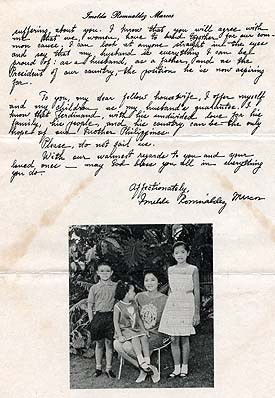 Imelda Romualdez Marcos
suffering about you. I know that you will agree with
me that we, women, have to unite together for our com-
mon cause. I can look at anyone straight into the eyes
and say that my husband is everything I can be
proud of: as a husband, as a father, and as the
President of our country, the position he is now aspiring
for.
To you, my dear fellow housewife, I offer myself
and my children as my husband's guarantee. I
know that Ferdinand, with his undivided love for his
family, his people, and his country can be the only
hope of our Mother Philippines.
Please, do not fail us.
With our warmest regards to you and your
loved ones — may God bless you all in everything
you do.
Affectionately,
Imelda Romualdez Marcos